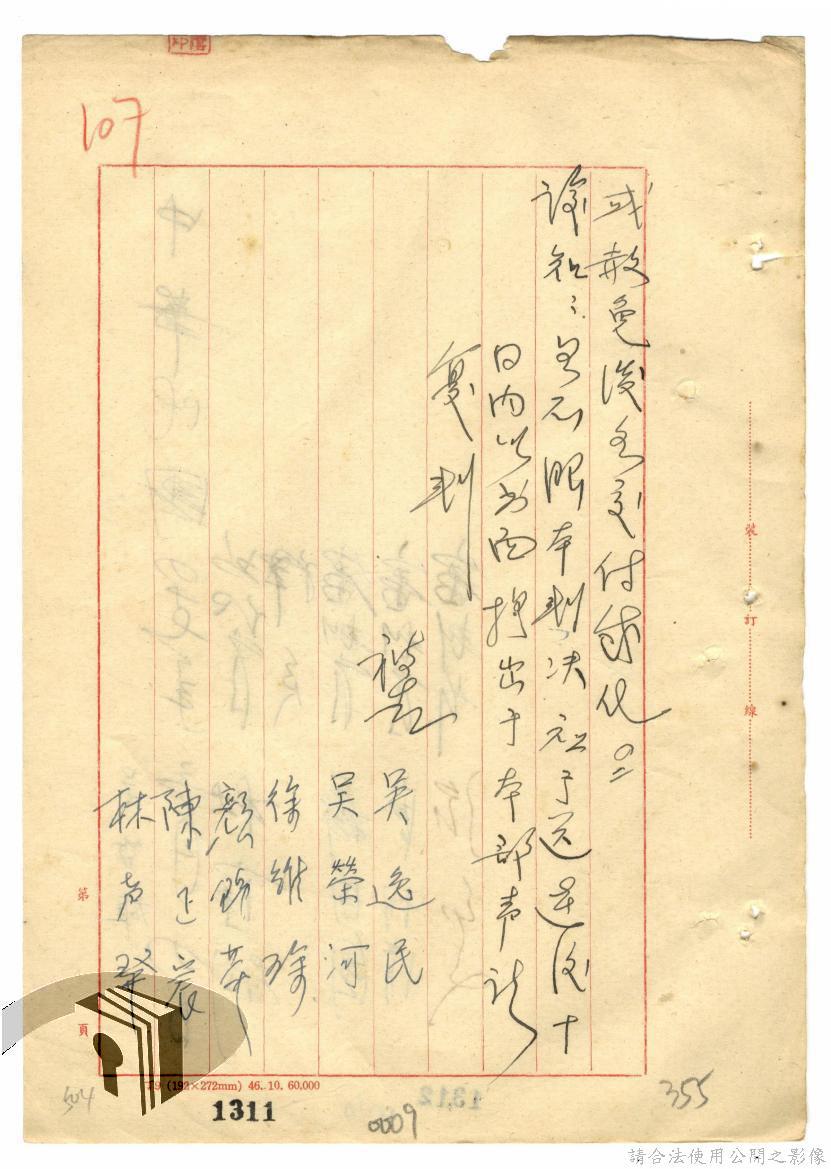 107
或赦免後另交付感化
諭知如不服本判決於送達後十
日內以書面提出于本部聲請
覆判
被告
吳逸民
吳榮河
徐維琛
顏錦華
陳正宸
林聲發
裝訂線
第頁
(192×272mm) 46. 10. 60,000
1311
1312
0009
355
504
請合法使用公開之影像